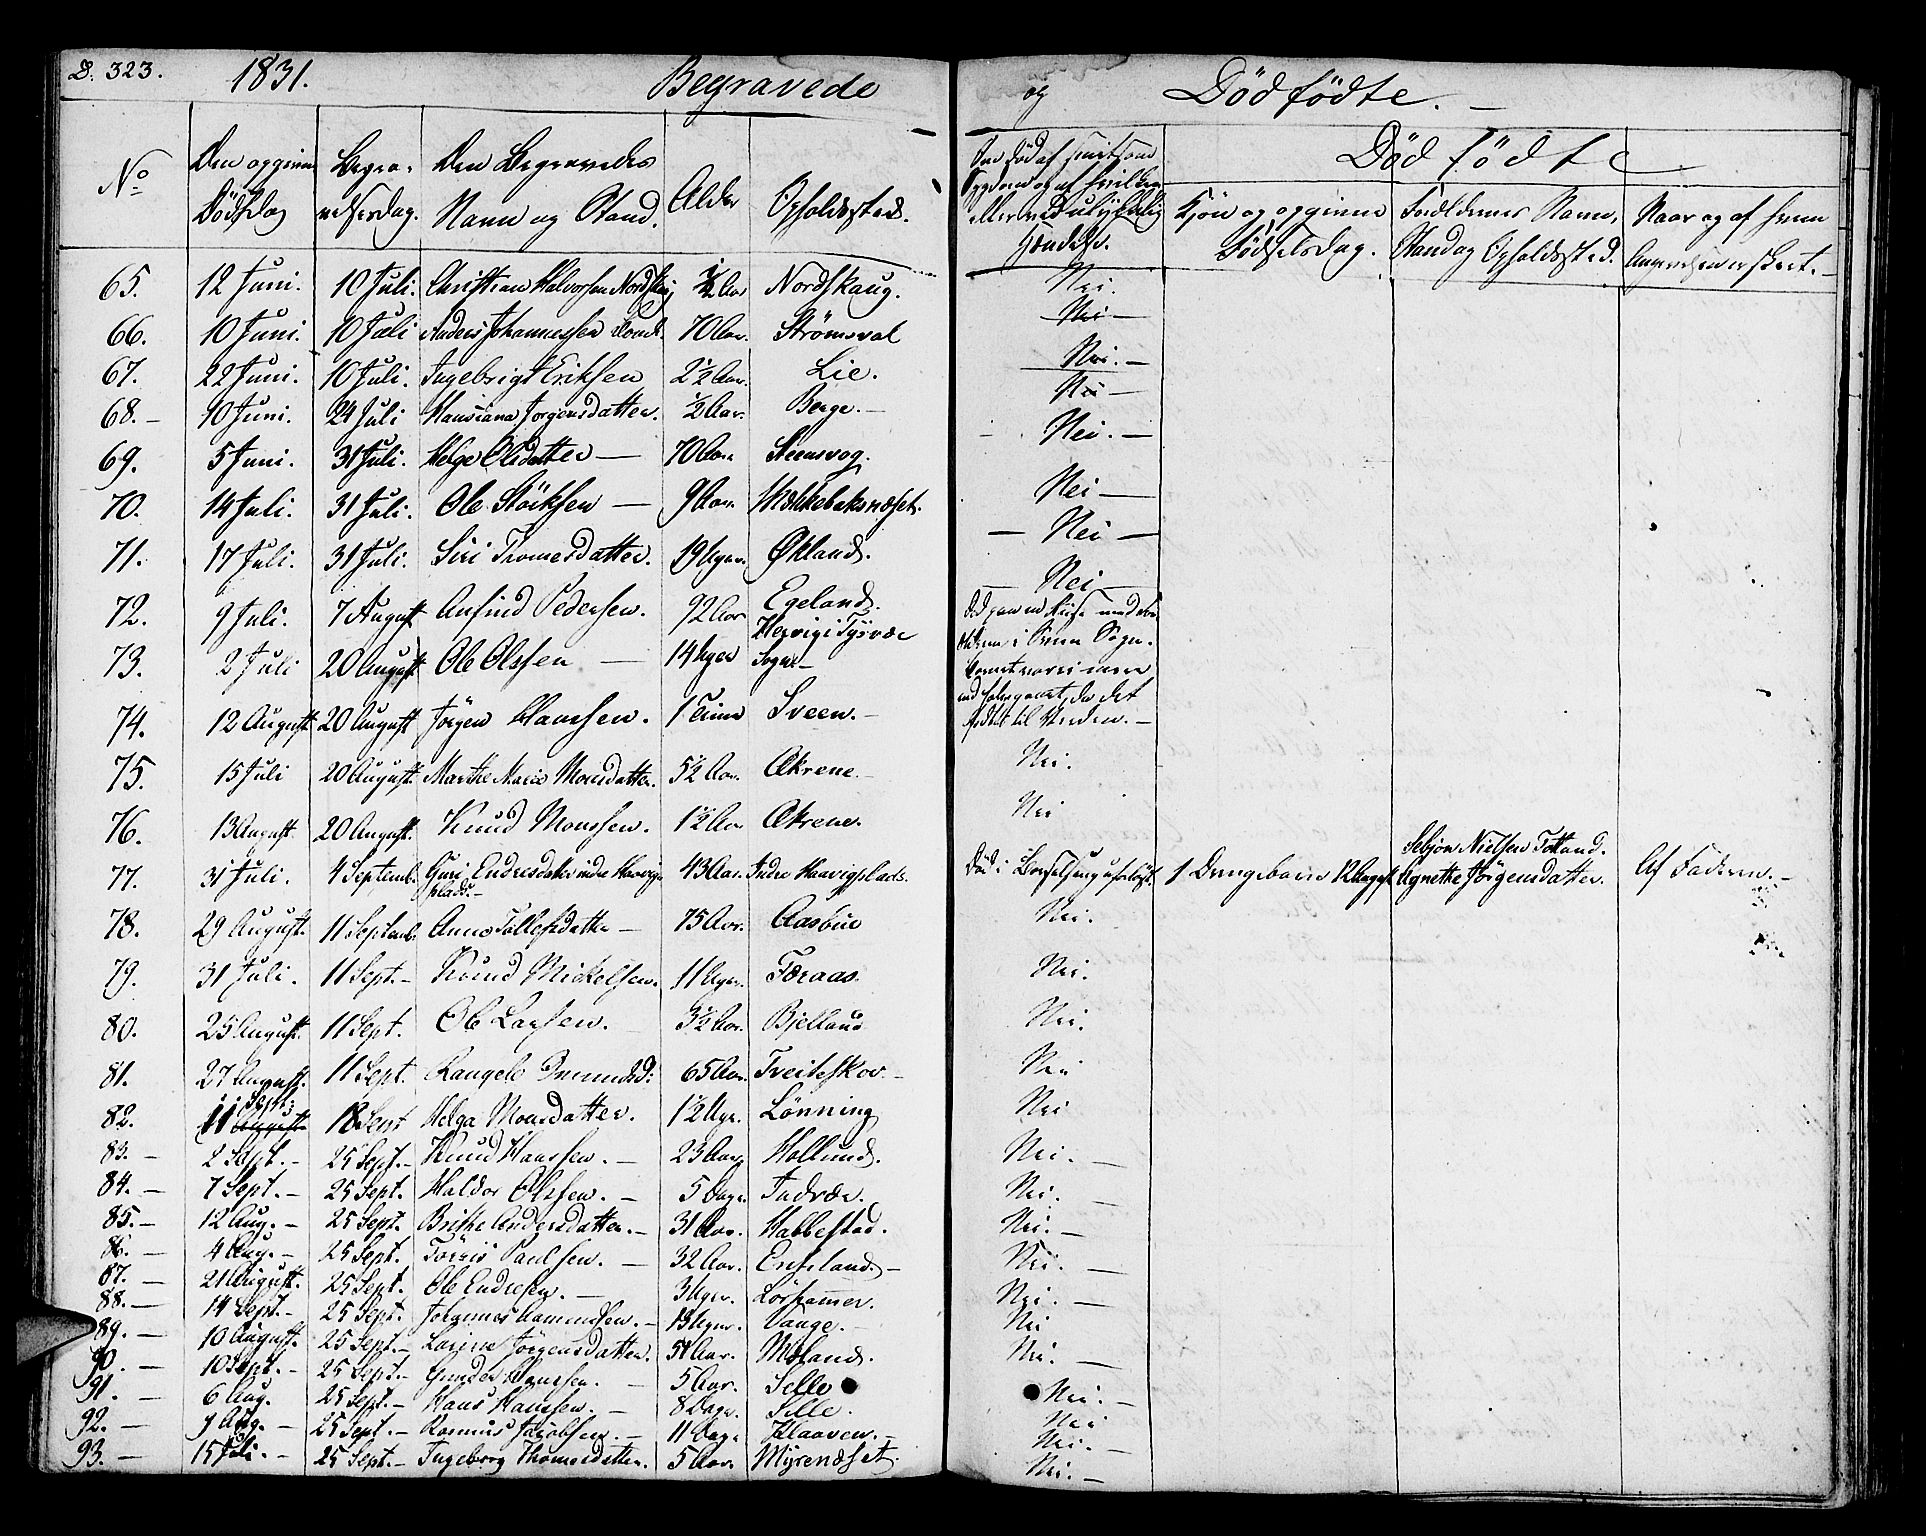 D. 323. 1831. Begravede og Dödfödte. —
No Den opgivne Dödsdag Begravelsesdag. Den Begravedes Navn og Stand. Alder Opholdssted. Död födte
Kjön og opgivne Födselsdag. Forældrenes Navn, Stand og Opholdssted. Naar og af hvem Anmeldelsen er skeet. —
65. 12 Juni. 10 Juli. Christian Halvorsen Nordskoug ½ Aar Nordskaug. Nei.
66. 10 Juni. 10 Juli Anders Johannessen 70 Aar. Strömsval Nei —
67. 22 Juni. 10 Juli. Ingebrigt Eriksen 2½ Aar. Lie. Nei. —
68. — 10 Juni. 24 Juli Hansiana Jørgensdatter. ½ Aar. Berge. — Nei —
69. 5 Juni. 31 Juli. Helge Olsdatter — 70 Aar Steensvog. Nei. —
70. 14 Juli. 31 Juli. Ole Stöiksen — 9 Aar. Nei —
71. 17 Juli. 31 Juli. Siri Thomesdatter. 19 Uger. Økland. — Nei —
72. 9 Juli. 7 August Anfind Pedersen. 92 Aar Egeland. — Nei —
73. 2 Juli 20 August Ole Olssen — 14 Uger Hervig i Tysvær Sogn —
74. 12 August 20 August Jørgen Hanssen. 1 Time Sveen. —
75. 15 Juli 20 August. Marthe Marie Monsdatter. 5½ Aar. Økrene. — Nei.
76. 13 August 20 August. Knud Monssen. 1½ Aar Økrene. Nei
77. 31 Juli. 4 Septemb. Guri Endresdatter indre Haavigs plads — 43 Aar. Indre Haavigplads. Död i Barselseng uforløst. 1 Drengebarn 12 August Sebjörn Nielsen Totland. Agnethe Jörgensdatter. Af Faderen. —
78. 29 August. 11 Septemb. Anna Tollefsdatter — 75 Aar. Aasbue Nei.
79. 31 Juli. 11 Sept. — Knud Mickelsen. 11 Uger. Færaas. Nei.
80. 25 August. 11 Sept. Ole Larsen. 3½ Aar. Bjelland Nei.
81. 27 August. 11 Sept. 65 Aar. Tveiteskov. — Nei
82. 11 Sept: August. 18 Sept Helga Monsdatter. 1½ Uge. Lönning Nei
83. — 2 Sept. — 25 Sept. — Knud Hanssen. — 23 Aar Hollund. Nei. —
84. — 7 Sept. — 25 Sept. Haldor Olssen. — 5 Dage. Indvær. Nei. —
85. — 12 Aug. — 25 Sept. Brithe Andersdatter. — 31 Aar. Habbestad. Nei. —
86. — 4 Aug. — 25 Sept. Torris Paulsen. — 32 Aar. Nei. —
87. — 21 August. 25 Sept. Ole Endresen. — 3 Uger. Lörhammer. Nei. —
88. — 14 Sept. — 25 Sept. Johannes — 13 Uger. Vange. — Nei
89. — 10 August. 25 Sept. — Jörgensdatter. 54 Aar. Moland. Nei. —
90. — 10 Sept. — 25 Sept. — Gunder Hanssen. — 5 Aar. Selle Nei. —
91. — 6 Aug. 25 Sept. — Hans Hanssen. — 8 Dage. Selle. Nei
92. — 7 Aug. — 25 Sept — Rasmus Jacobsen. — 11 Dage Klaaven. — Nei. —
93. — 15 Juli. — 25 Sept. — Ingeborg Thomesdatter. 5 Aar. Myrendset. Nei. —